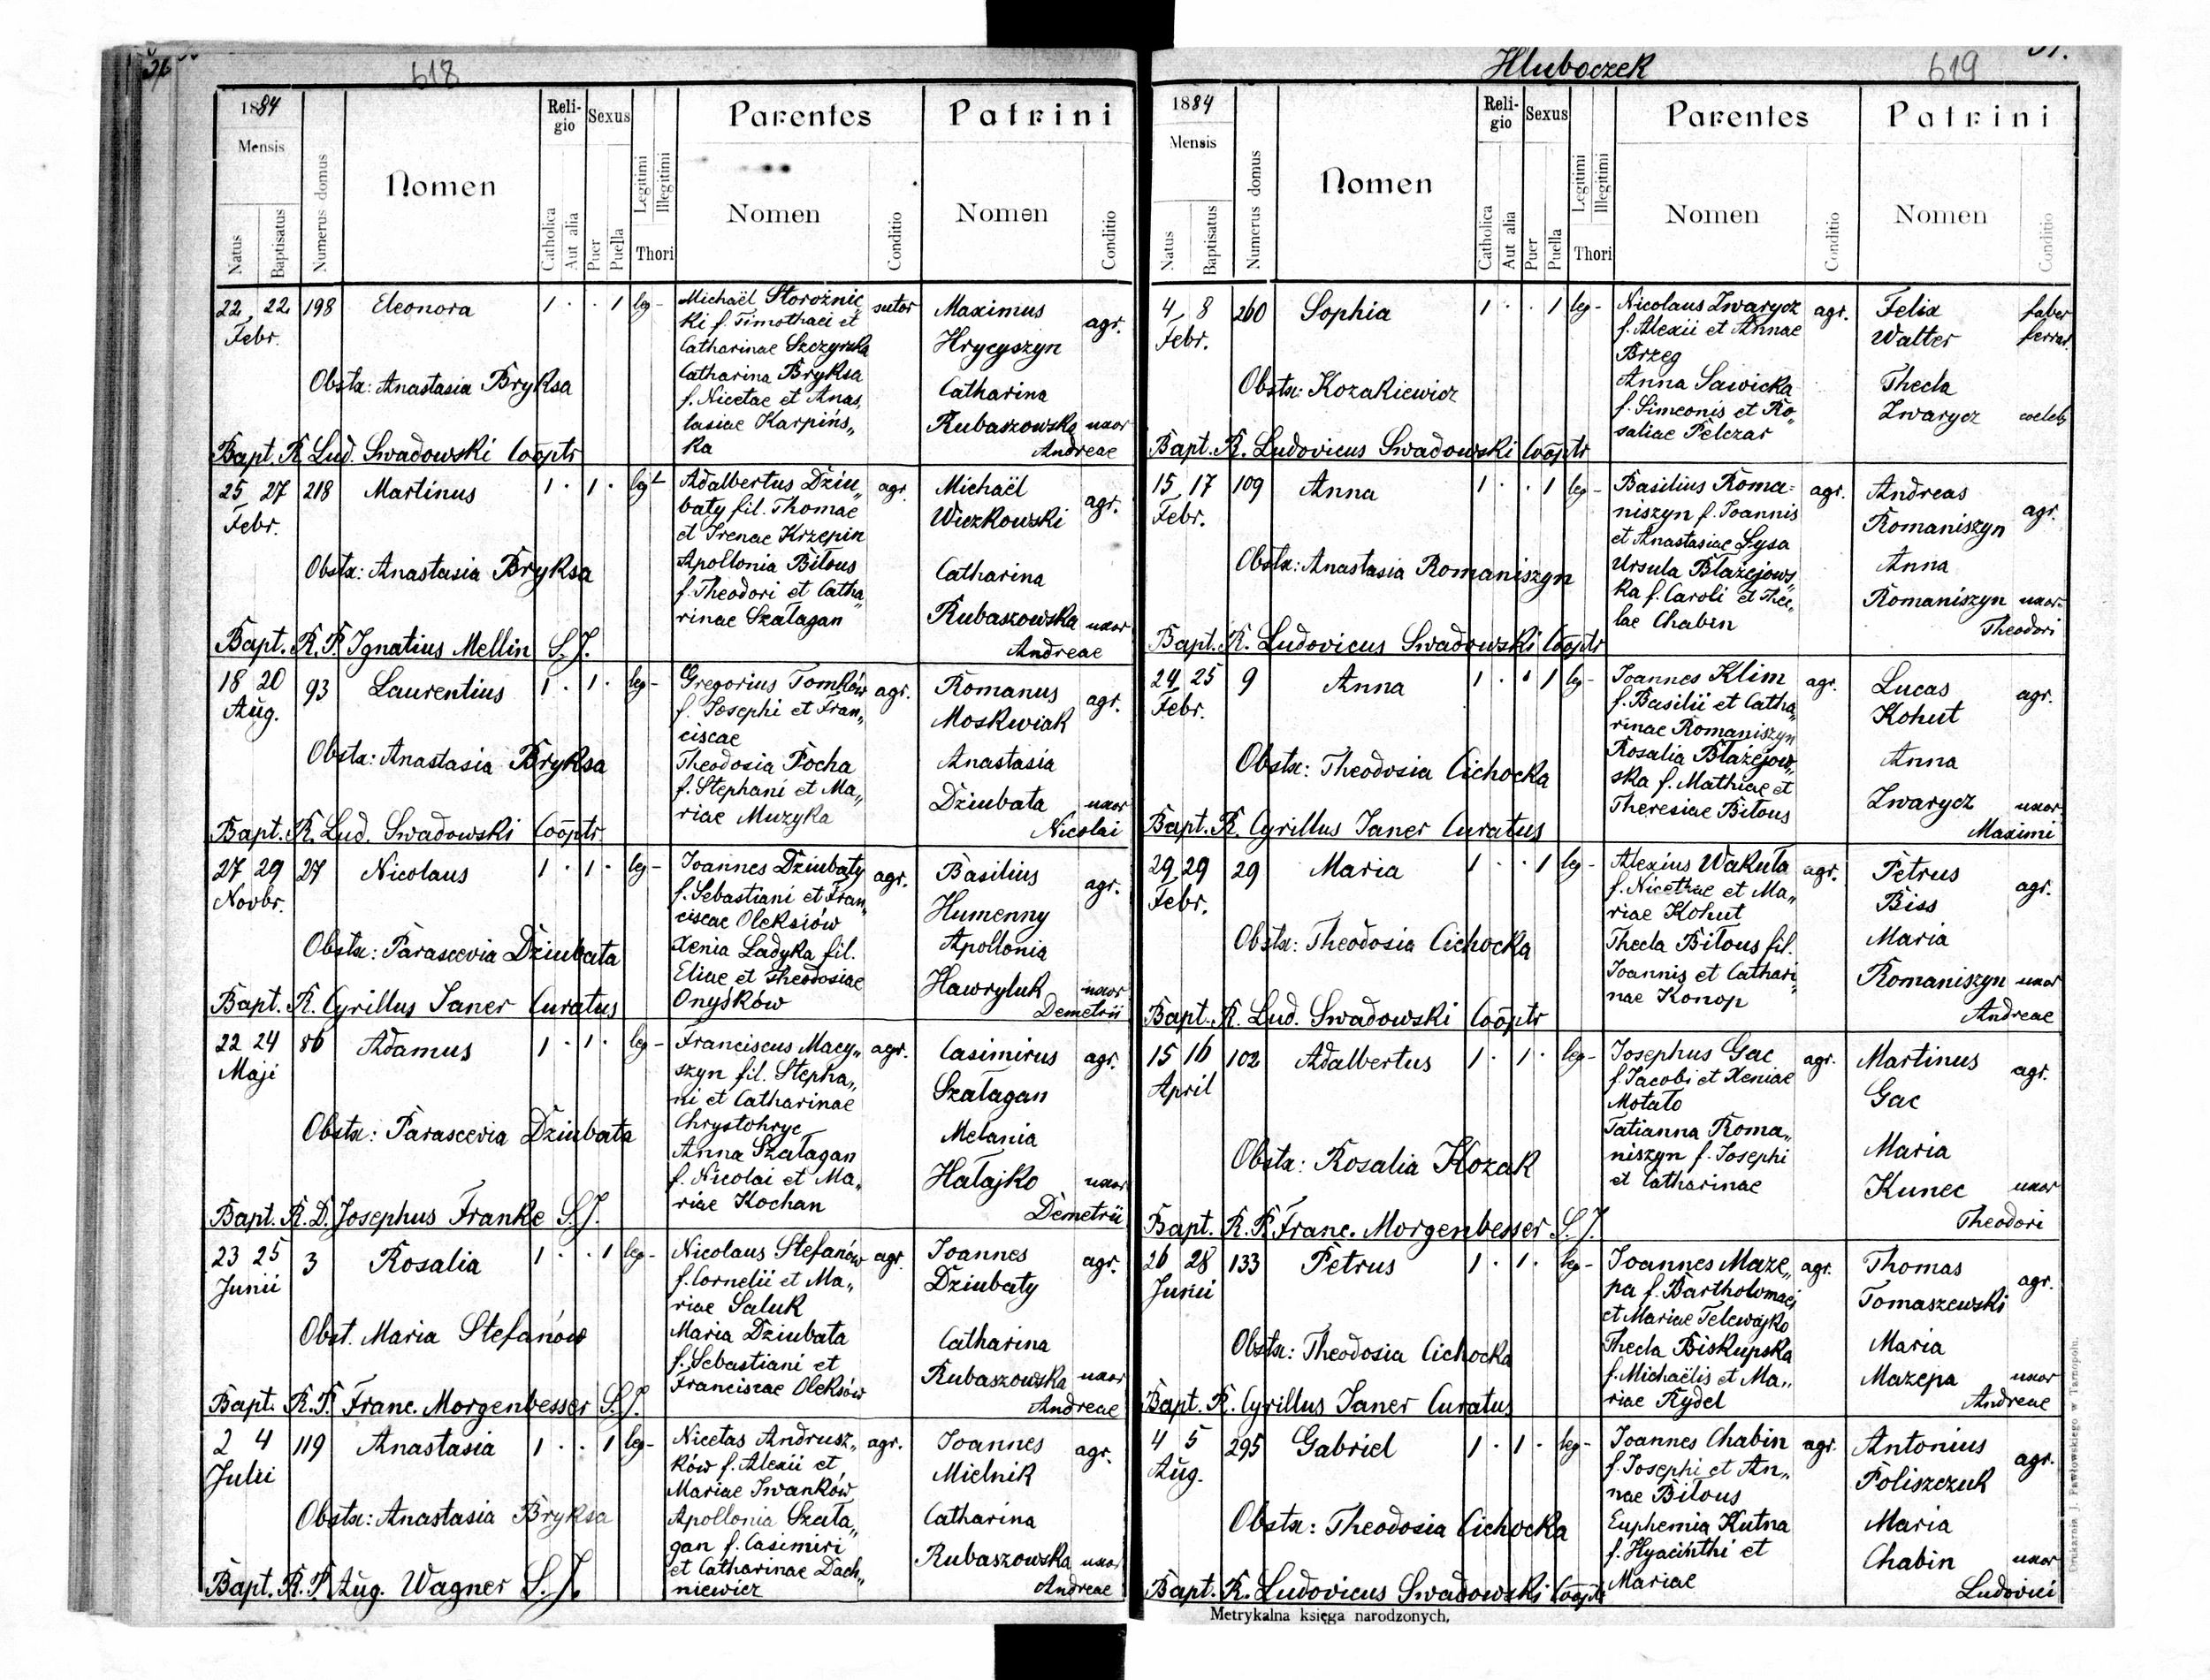 36
618
1884
Mensis
Natus
Baptisatus
Numerus domus
Nomen
Religio
Catholica
Aut alia
Sexus
Puer
Puella
Legitimi
Illegitimi
Thori
Parentes
Nomen
Conditio
Patrini
Nomen
Conditio
22 22 198 Eleonora 1 · · 1 leg-
Febr.
Michaël Storożnic„
ki f. Timothaei et
Catharinae Szczyrska
Catharina Bryksa
f. Nicetae et Anas„
tasiae Karpińs„
ka
sutor
Maximus
Hrycyszyn
agr.
Catharina
Rubaszowska uxor
Andreae
Obstx: Anastasia Bryksa
Bapt. R. Lud. Swadowski Coõptr
25 27 218 Martinus 1 · 1 · legt
Febr.
Adalbertus Dziu„
baty fil. Thomae
et Irenae Krzepin
Apollonia Biłous
f. Theodori et Catha„
rinae Szałagan
agr.
Michaël
Wuzkowski
agr.
Catharina
Rubaszowska uxor
Andreae
Obstx: Anastasia Bryksa
Bapt. R. P. Ignatius Mellin S. J.
18 20 93 Laurentius 1 · 1 · leg-
Aug.
Gregorius Tomków
f. Josephi et Fran„
ciscae
Theodosia Pocha
f. Stephani et Ma„
riae Muzyka
agr.
Romanus
Moskwiak
agr.
Anastasia
Dziubata uxor
Nicolai
Obstx: Anastasia Bryksa
Bapt. R. Lud. Swadowski Coõptr
27 29 27 Nicolaus 1 · 1 · leg-
Novbr.
Joannes Dziubaty
f. Sebastiani et Fran„
ciscae Oleksiów
Xenia Ladyka fil.
Eliae et Theodosiae
Onyśków
agr.
Basilius
Humenny
agr.
Apollonia
Hawryluk uxor
Demetrii
Obstx: Parascevia Dziubata
Bapt. R. Cyrillus Janer Curatus
22 24 86 Adamus 1 · 1 · leg-
Maji
Franciscus Macy„
szyn fil. Stepha„
ni et Catharinae
Chrystohryc
Anna Szałagan
f. Nicolai et Ma„
riae Kochan
agr.
Casimirus
Szałagan
agr.
Melania
Hałajko uxor
Demetrii
Obstx: Parascevia Dziubata
Bapt. R. D. Josephus Franke S. J.
23 25 3 Rosalia 1 · · 1 leg-
Junii
Nicolaus Stefanów
f. Cornelii et Ma„
riae Saluk
Maria Dziubata
f. Sebastiani et
Franciscae Oleksów
agr.
Joannes
Dziubaty
agr.
Catharina
Rubaszowska uxor
Andreae
Obst. Maria Stefanów
Bapt. R. P. Franc. Morgenbesser S. J.
2 4 119 Anastasia 1 · · 1 leg-
Julii
Nicetas Andrusz„
ków f. Alexii et
Mariae Iwanków
Apollonia Szała„
gan f. Casimiri
et Catharinae Dach„
niewicz
agr.
Joannes
Mielnik
agr.
Catharina
Rubaszowska uxor
Andreae
Obstx: Anastasia Bryksa
Bapt. R. P. Aug. Wagner S. J.
Hluboczek
619
1884
Mensis
Natus
Baptisatus
Numerus domus
Nomen
Religio
Catholica
Aut alia
Sexus
Puer
Puella
Legitimi
Illegitimi
Thori
Parentes
Nomen
Conditio
Patrini
Nomen
Conditio
4 8 260 Sophia 1 · · 1 leg-
Febr.
Nicolaus Zwarycz
f. Alexii et Annae
Brzeg
Anna Sawicka
f. Simeonis et Ro„
saliae Pelczar
agr.
Felix
Walter
faber
ferrar.
Thecla
Zwarycz coelebs
Obstx: Kozakiewicz
Bapt. R. Ludovicus Swadowski Coõptr
15 17 109 Anna 1 · · 1 leg-
Febr.
Basilius Roma=
niszyn f. Joannis
et Anastasiae Łysa
Ursula Błażejows„
ka f. Caroli et Thec„
lae Chabin
agr.
Andreas
Romaniszyn
agr.
Anna
Romaniszyn uxor
Theodori
Obstx: Anastasia Romaniszyn
Bapt. R. Ludovicus Swadowski Coõptr
24 25 9 Anna 1 · · 1 leg-
Febr.
Joannes Klim
f. Basilii et Catha„
rinae Romaniszyn
Rosalia Błażejow„
ska f. Mathiae et
Theresiae Biłous
agr.
Lucas
Kohut
agr.
Anna
Zwarycz uxor
Maximi
Obstx: Theodosia Cichocka
Bapt. R. Cyrillus Janer Curatus
29 29 29 Maria 1 · · 1 leg-
Febr.
Alexius Wakuła
f. Nicethae et Ma„
riae Kohut
Thecla Biłous fil.
Joannis et Cathari„
nae Konop
agr.
Petrus
Biss
agr.
Maria
Romaniszyn uxor
Andreae
Obstx: Theodosia Cichocka
Bapt. R. Lud. Swadowski Coõptr
15 16 102 Adalbertus 1 · 1 · leg-
April
Josephus Gac
f. Jacobi et Xeniae
Motało
Tatianna Roma„
niszyn f. Josephi
et Catharinae
agr.
Martinus
Gac
agr.
Maria
Kunec uxor
Theodori
Obstx: Rosalia Kozak
Bapt. R. P. Franc. Morgenbesser S. J.
26 28 133 Petrus 1 · 1 · leg-
Junii
Joannes Maze„
pa f. Bartholomaei
et Mariae Telewajko
Thecla Biskupska
f. Michaëlis et Ma„
riae Rydel
agr.
Thomas
Tomaszewski
agr.
Maria
Mazepa uxor
Andreae
Obstx: Theodosia Cichocka
Bapt. R. Cyrillus Janer Curatus
4 5 295 Gabriel 1 · 1 · leg-
Aug.
Joannes Chabin
f. Josephi et An„
nae Biłous
Euphemia Kutna
f. Hyacinthi et
Mariae
agr.
Antonius
Poliszczuk
agr.
Maria
Chabin uxor
Ludovici
Obstx: Theodosia Cichocka
Bapt. R. Ludovicus Swadowski Coõptr
Metrykalna księga narodzonych,
Drukarnia J. Pawłowskiego w Tarnopolu.